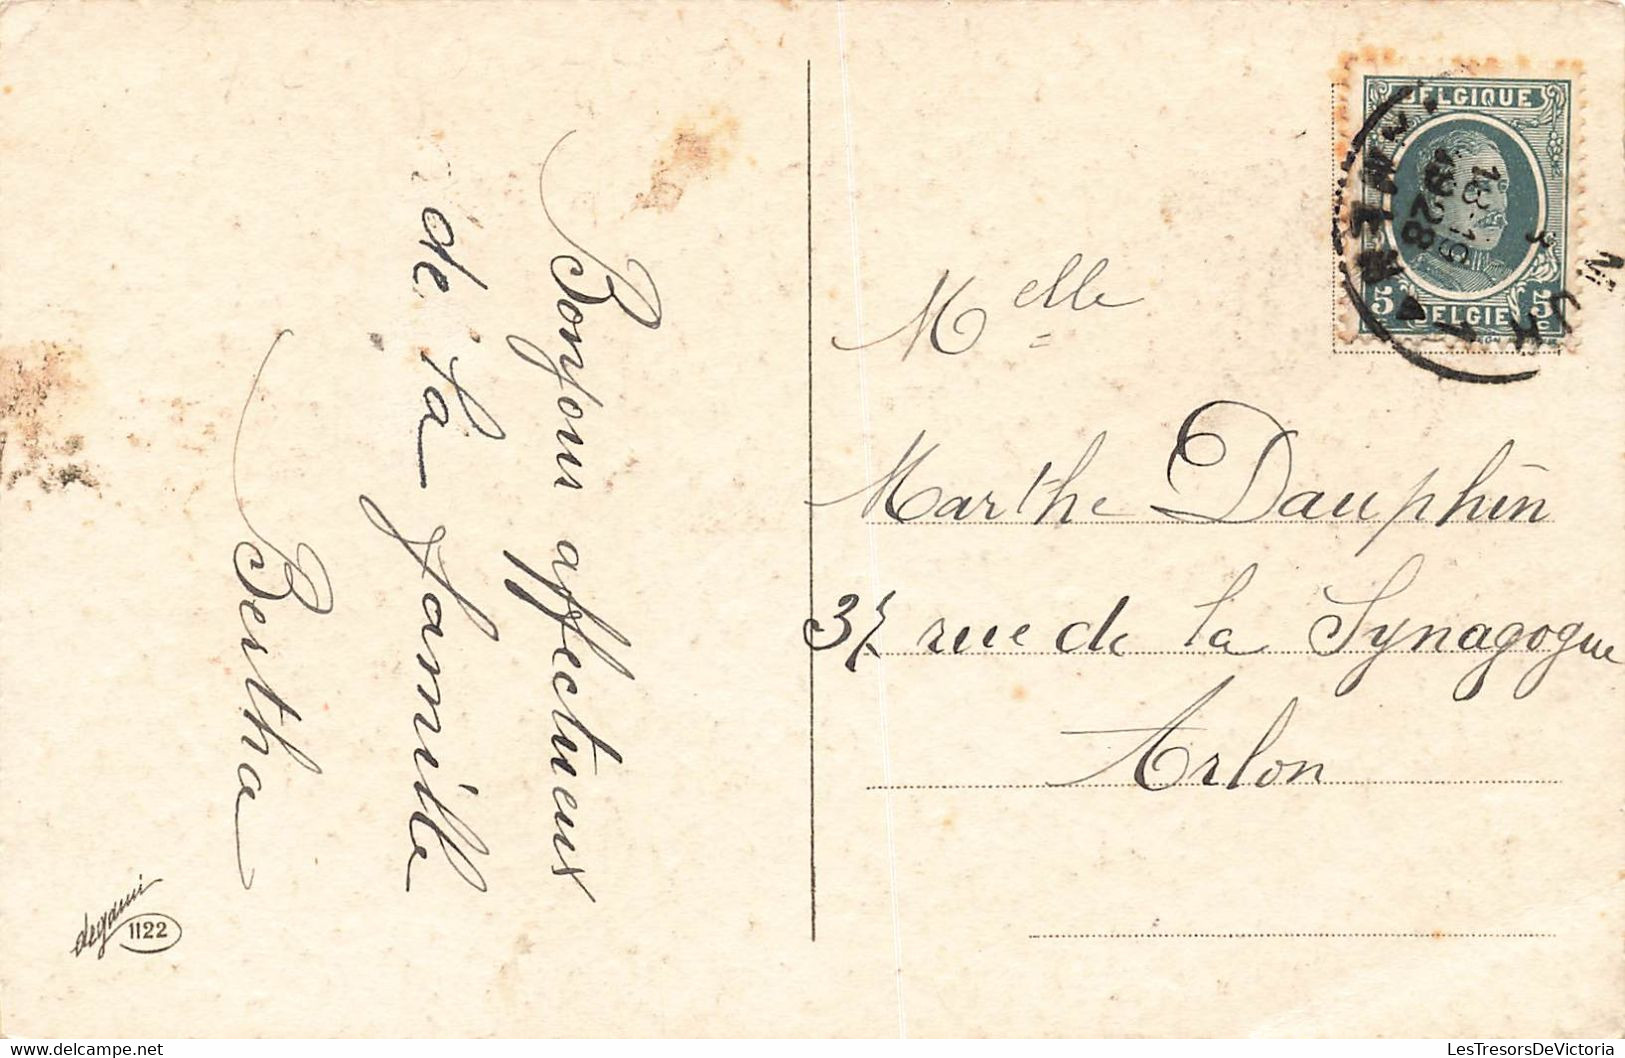 Bonjour affectueux
de la famille
Bertha
degami
1122
BELGIQUE
13-19
1928
5c BELGIE 5c
Melle
Marthe Dauphin
37 rue de la Synagogue
Arlon
delcampe.net
LesTresorsDeVictoria